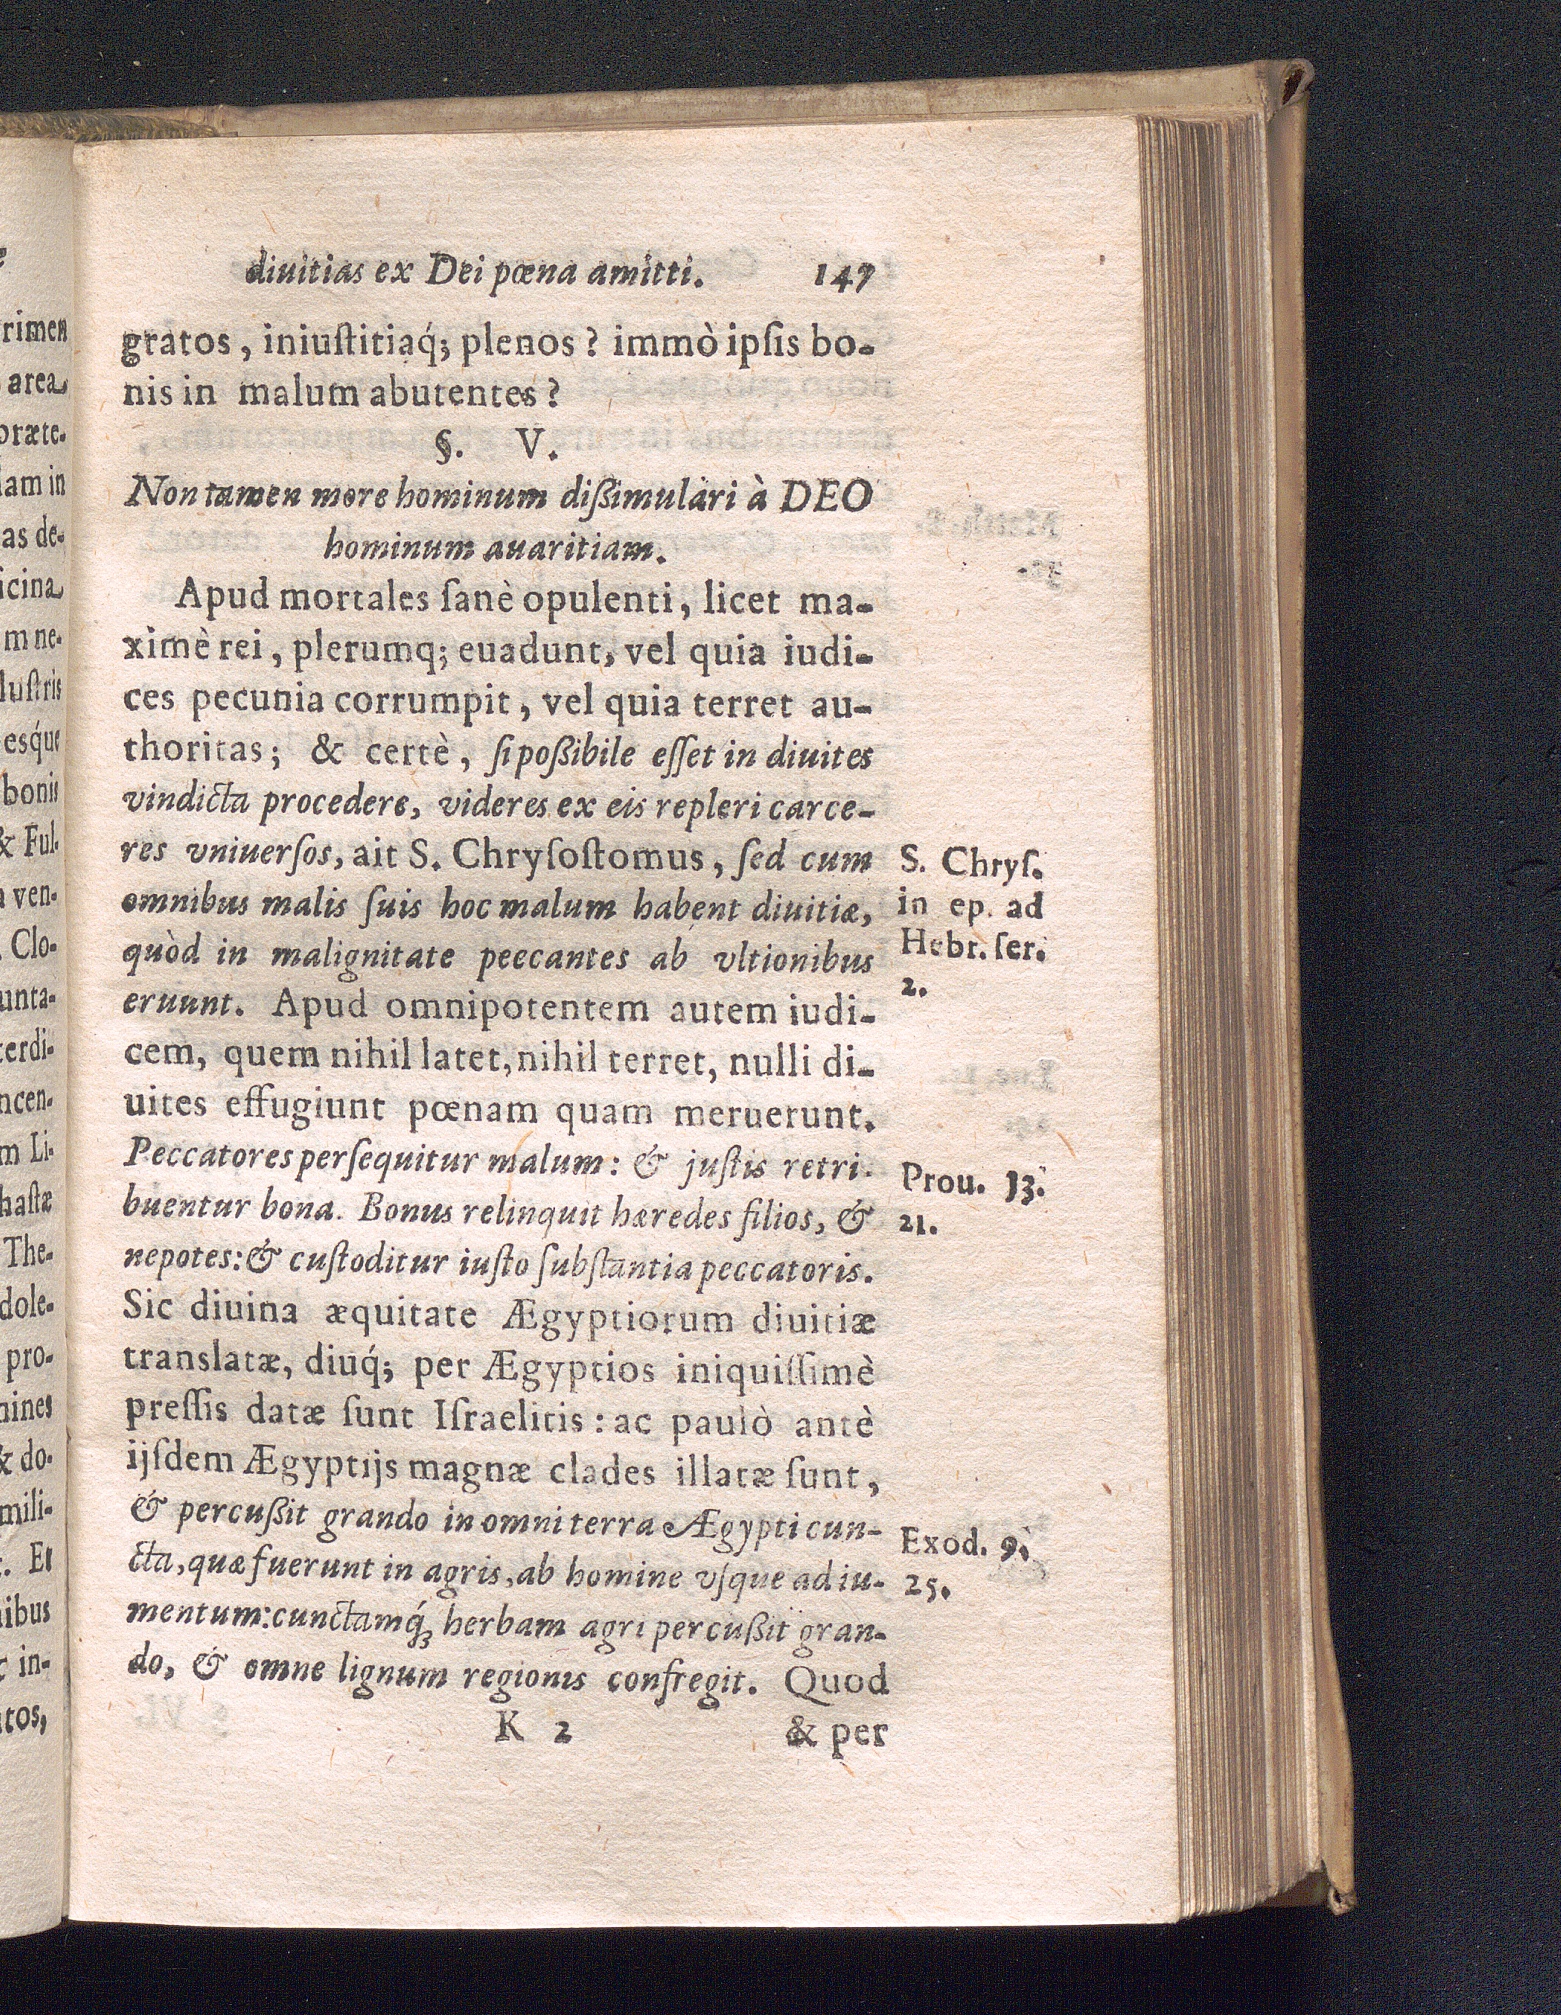 diuitias ex Dei pœna amitti. 147
gratos, iniuſtitiaq́; plenos? immò ipſis bo-
nis in malum abutentes?
§. V.
Non tamen more hominum dißimulari à DEO
hominum auaritiam.
Apud mortales ſanè opulenti, licet ma-
ximè rei, plerumq; euadunt, vel quia iudi-
ces pecunia corrumpit, vel quia terret au-
thoritas; & certè, ſi poßibile eſſet in diuites
vindicta procedere, videres ex eis repleri carce-
res vniuerſos, ait S. Chryſoſtomus, ſed cum
omnibus malis ſuis hoc malum habent diuitiæ,
quòd in malignitate peccantes ab vltionibus
eruunt. Apud omnipotentem autem iudi-
cem, quem nihil latet, nihil terret, nulli di-
uites effugiunt pœnam quam meruerunt.
Peccatores perſequitur malum: & juſtis retri-
buentur bona. Bonus relinquit hæredes filios, &
nepotes: & cuſtoditur iuſto ſubſtantia peccatoris.
Sic diuina æquitate Ægyptiorum diuitiæ
translatæ, diuq́; per Ægyptios iniquiſſimè
preſſis datæ ſunt Iſraelitis: ac paulò antè
ijſdem Ægyptijs magnæ clades illatæ ſunt,
& percußit grando in omni terra Ægypti cun-
cta, quæ fuerunt in agris, ab homine vſque ad iu-
mentum: cunctamq́; herbam agri percußit gran-
do, & omne lignum regionis confregit. Quod
K 2 & per
S. Chryſ.
in ep. ad
Hebr. ſer.
2.
Prou. 13.
21.
Exod. 9.
25.
rimen
area
præte-
iam in
as de-
icina
m ne-
luſtris
esq́ue
bonis
& Ful-
ven-
Clo-
unta-
terdi-
ncen-
m Li-
haſtæ
The-
dole-
pro-
mines
& do-
mili-
Et
nibus
in-
tos,